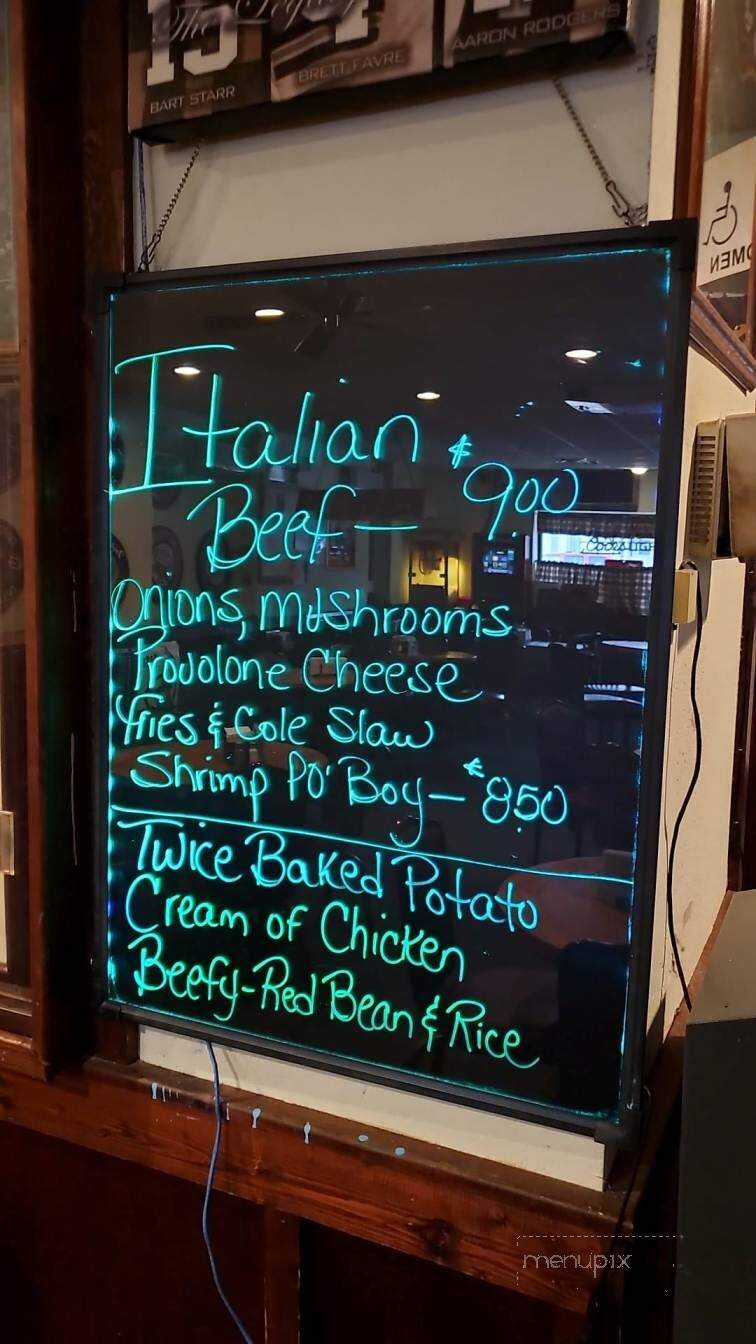 The Legacy
15
4
BART STARR
BRETT FAVRE
AARON RODGERS
WOMEN
Italian
Beef — $9.00
Onions, Mushrooms
Provolone Cheese
Fries & Cole Slaw
Shrimp PO' Boy — $8.50
Twice Baked Potato
Cream of Chicken
Beefy-Red Bean & Rice
menupix